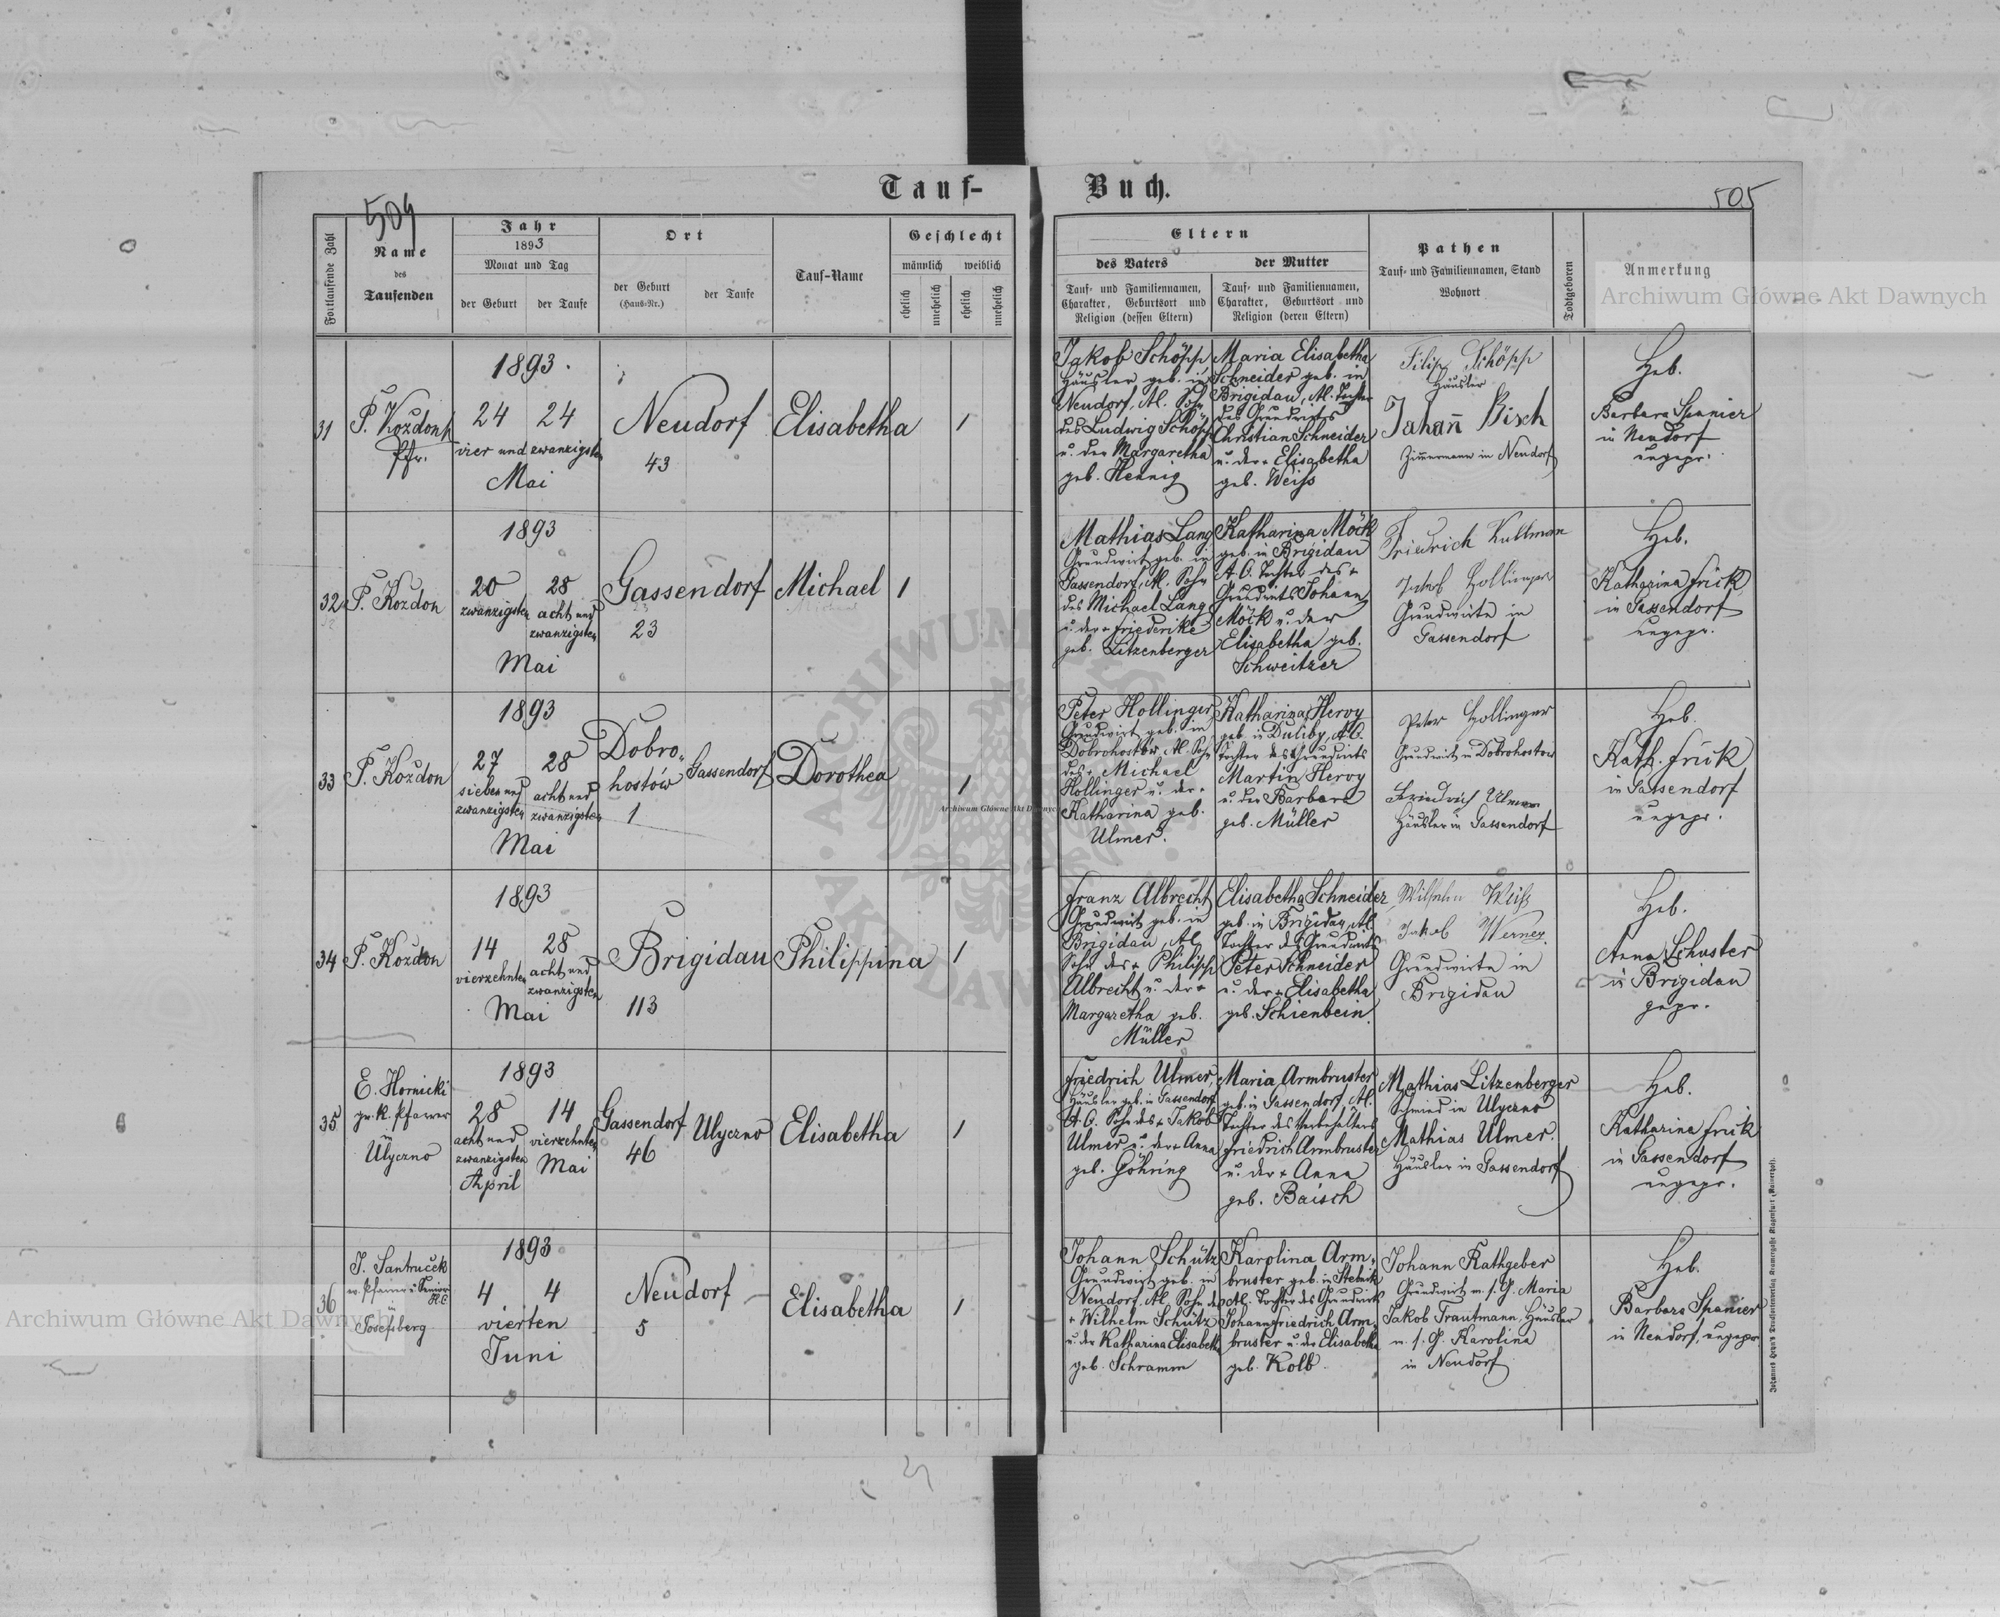 Tauf-
Buch.
504
505
Fortlaufende Zahl
Name
des
Taufenden
Jahr
1893
Monat und Tag
der Geburt
der Taufe
Ort
der Geburt
(Haus-Nr.)
der Taufe
Tauf-Name
Geschlecht
männlich
weiblich
ehelich
unehelich
ehelich
unehelich
Eltern
des Vaters
Tauf- und Familiennamen,
Charakter, Geburtsort und
Religion (dessen Eltern)
der Mutter
Tauf- und Familiennamen,
Charakter, Geburtsort und
Religion (deren Eltern)
Pathen
Tauf- und Familiennamen, Stand
Wohnort
Todtgeboren
Anmerkung
31
P. Kozdon
Pfr.
1893.
24 24
vier und zwanzigsten
Mai
Neudorf
43
Elisabetha
1
Jakob Schöpp
Häusler geb. in
Neudorf, Al. Sohn
des Ludwig Schöpp
u. der Margaretha
geb. Hennig
Maria Elisabetha
Schneider geb. in
Brigidau, Al. Tochter
des Grundwirts
Christian Schneider
u. der + Elisabetha
geb. Weiss
Filip Schöpp
Häusler
Johann Bisch
Zimmermann in Neudorf
Heb.
Barbara Spanier
in Neudorf
ungepr.
32
P. Kozdon
1893
20
zwanzigsten
28
acht und
zwanzigsten
Mai
Gassendorf
23
Michael
1
Mathias Lang
Grundwirt geb. in
Gassendorf, Al. Sohn
des Michael Lang
u. der + Friederike
geb. Litzenberger
Katharina Möck
geb. in Brigidau
A. C. Tochter des +
Grundwirts Johann
Möck u. der
Elisabetha geb.
Schweitzer
Friedrich Kullman
Jakob Hollinger
Grundwirte in
Gassendorf
Heb.
Katharina Frick
in Gassendorf
ungepr.
33
P. Kozdon
1893
27
sieben und
zwanzigsten
28
acht und
zwanzigsten
Mai
Dobro-
hostów
1
Gassendorf
Dorothea
1
Peter Hollinger,
Grundwirt geb. in
Dobrohostów, Al. Sohn
des + Michael
Hollinger u. der +
Katharina geb.
Ulmer.
Katharina Hervy
geb. in Duliby, A. C.
Tochter des Grundwirts
Martin Hervy
u. der Barbara
geb. Müller
Peter Hollinger
Grundwirt in Dobrohostów
Friedrich Ulmer
Häusler in Gassendorf
Heb.
Kath. Frick
in Gassendorf
ungepr.
34
P. Kozdon
1893
14
vierzehnten
28
acht und
zwanzigsten
Mai
Brigidau
113
Philippina
1
Franz Albrecht
Grundwirt geb. in
Brigidau, Al.
Sohn des + Philipp
Albrecht u. der +
Margaretha geb.
Müller
Elisabetha Schneider,
geb. in Brigidau, Al.
Tochter des Grundwirts
Peter Schneider
u. der + Elisabetha
geb. Schienbein.
Wilhelm Weiß
Jakob Werner.
Grundwirte in
Brigidau
Heb.
Anna Schuster
in Brigidau
gepr.
35
E. Hornicki
gr. k. Pfarrer
in
Ulyczno
1893
28
acht und
zwanzigsten
April
14
vierzehnten
Mai
Gassendorf
46
Ulyczno
Elisabetha
1
Friedrich Ulmer,
Häusler geb. in Gassendorf
A. C. Sohn des + Jakob
Ulmer u. der + Anna
geb. Göhring
Maria Armbruster
geb. in Gassendorf, Al.
Tochter des Vorbehälters
Friedrich Armbruster
u. der + Anna
geb. Baisch
Mathias Litzenberger
Schmied in Ulyczno
Mathias Ulmer.
Häusler in Gassendorf
Heb.
Katharina Frick
in Gassendorf
ungepr.
36
J. Santrucek
ev. Pfarrer u. Senior
H. C.
in
Josefsberg
1893
4 4
vierten
Juni
Neudorf
5
Elisabetha
1
Johann Schütz
Grundwirt geb. in
Neudorf, Al. Sohn des
+ Wilhelm Schütz
u. der Katharina Elisabeth
geb. Schramm
Karolina Arm-
bruster geb. in Stebnik
Al. Tochter des Grundwirts
Johann Friedrich Arm-
bruster u. der Elisabetha
geb. Kolb.
Johann Rathgeber
Grundwirt m. s. G. Maria
Jakob Trautmann, Häusler
m. s. G. Karolina
in Neudorf
Heb.
Barbara Spanier
in Neudorf, ungepr.
Archiwum Główne Akt Dawnych
Archiwum Główne Akt Dawnych
Archiwum Główne Akt Dawnych